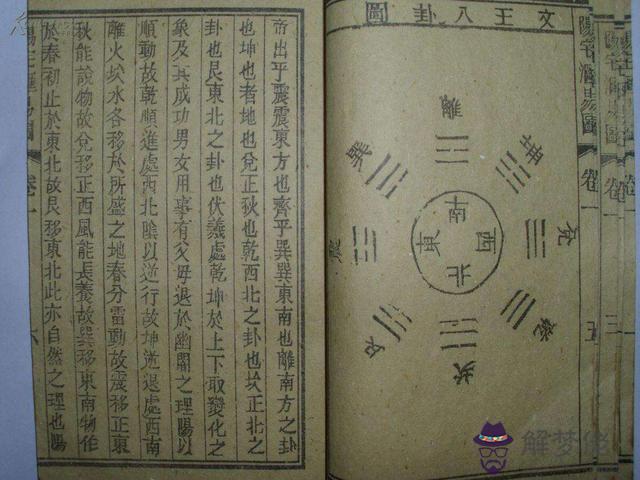 文王八卦圖
離
巽
坤
震
兌
艮
乾
坎
南
東
西
北
卷一
五
帝出乎震震東方也齊乎巽巽東南也離南方之卦
也坤也者地也兌正秋也乾西北之卦也坎正北之
卦也艮東北之卦也伏羲處乾坤於上下取變化之
象及其成功男女用事有父母退於幽閒之理陽以
順動故乾順進處西北陰以逆行故坤逆退處西南
離火坎水各移於所盛之地春分雷動故震移正東
秋能說物故兌移正西風能長養故巽移東南物作
於春初止於東北故艮移東北此亦自然之理也陽
卷一
六
卷一
三
解梦佬